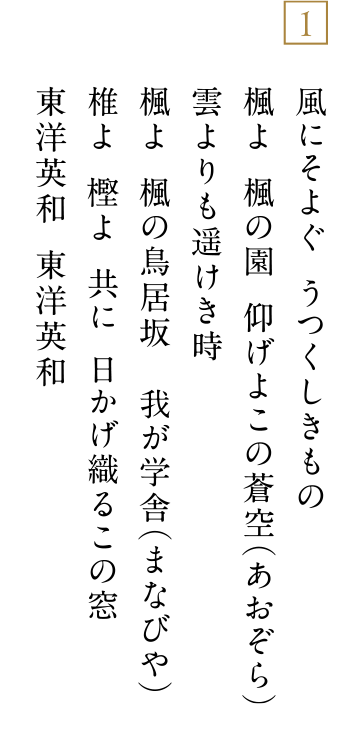 1
風にそよぐ　うつくしきもの
楓よ　楓の園　仰げよこの蒼空(あおぞら)
雲よりも遥けき時
楓よ　楓の鳥居坂　我が学舎(まなびや)
椎よ　樫よ　共に　日かげ織るこの窓
東洋英和　東洋英和